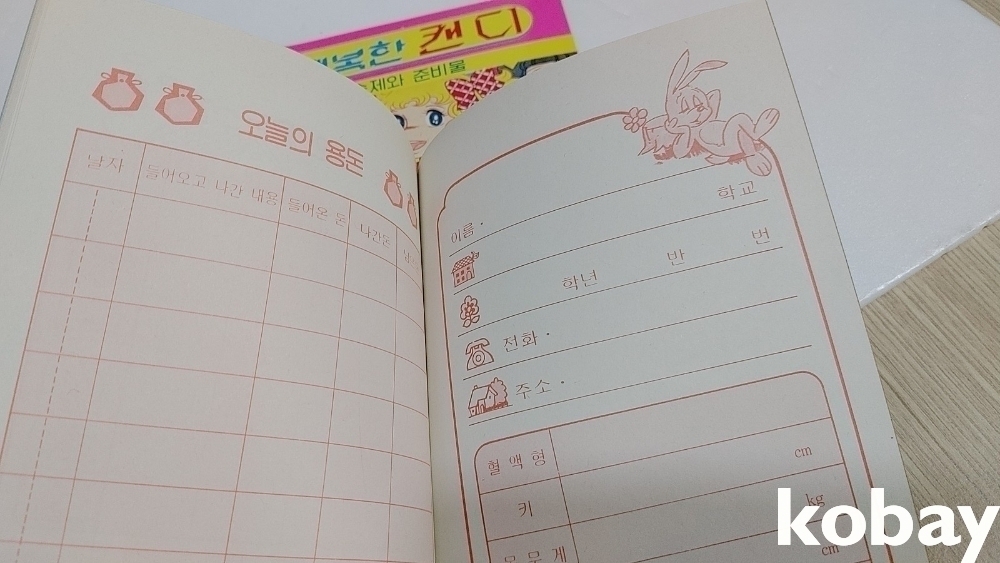 행복한 캔디
숙제와 준비물
오늘의 용돈
날자 들어오고 나간 내용 들어온 돈 나간돈 남
이름· 학교
학년 반 번
전화·
주소·
혈액형 cm
키 kg
몸무게 cm
kobay